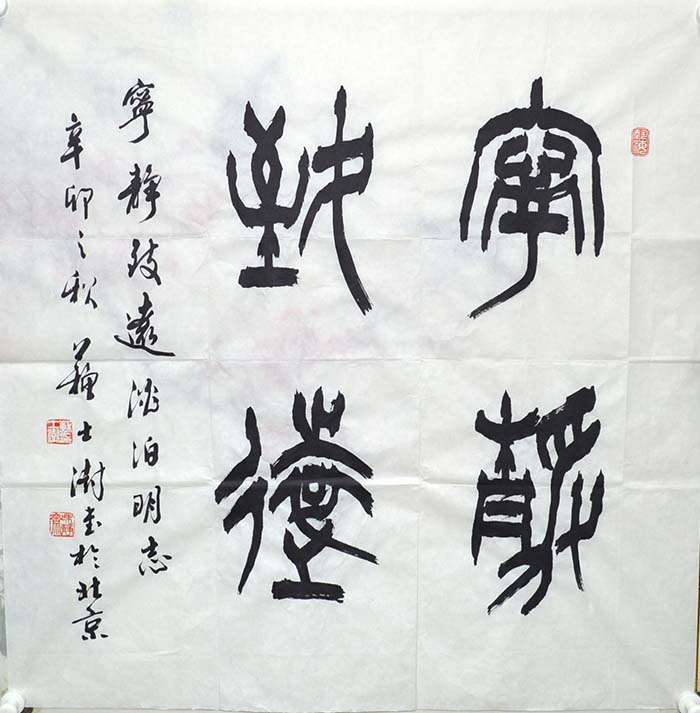 寧靜
致遠
寧靜致遠澹泊明志
辛卯之秋蘇士澍書於北京